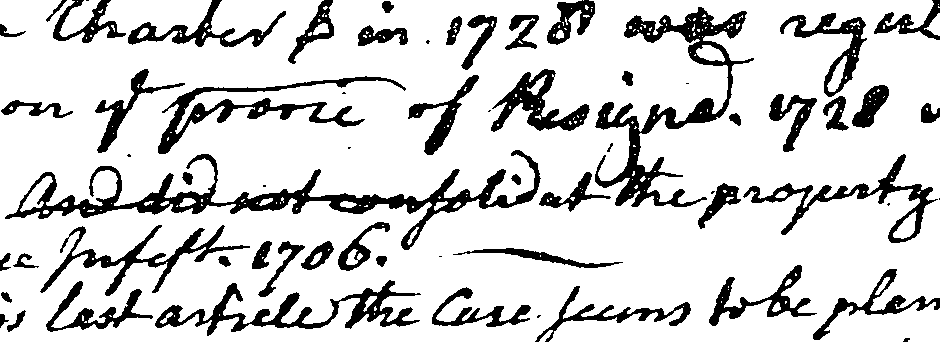 Charter in 1728 was regul
on ye prorie of Resigna. 1728
And did not consolidat the property
Infeft. 1706.
is last article the Case seems to be plan